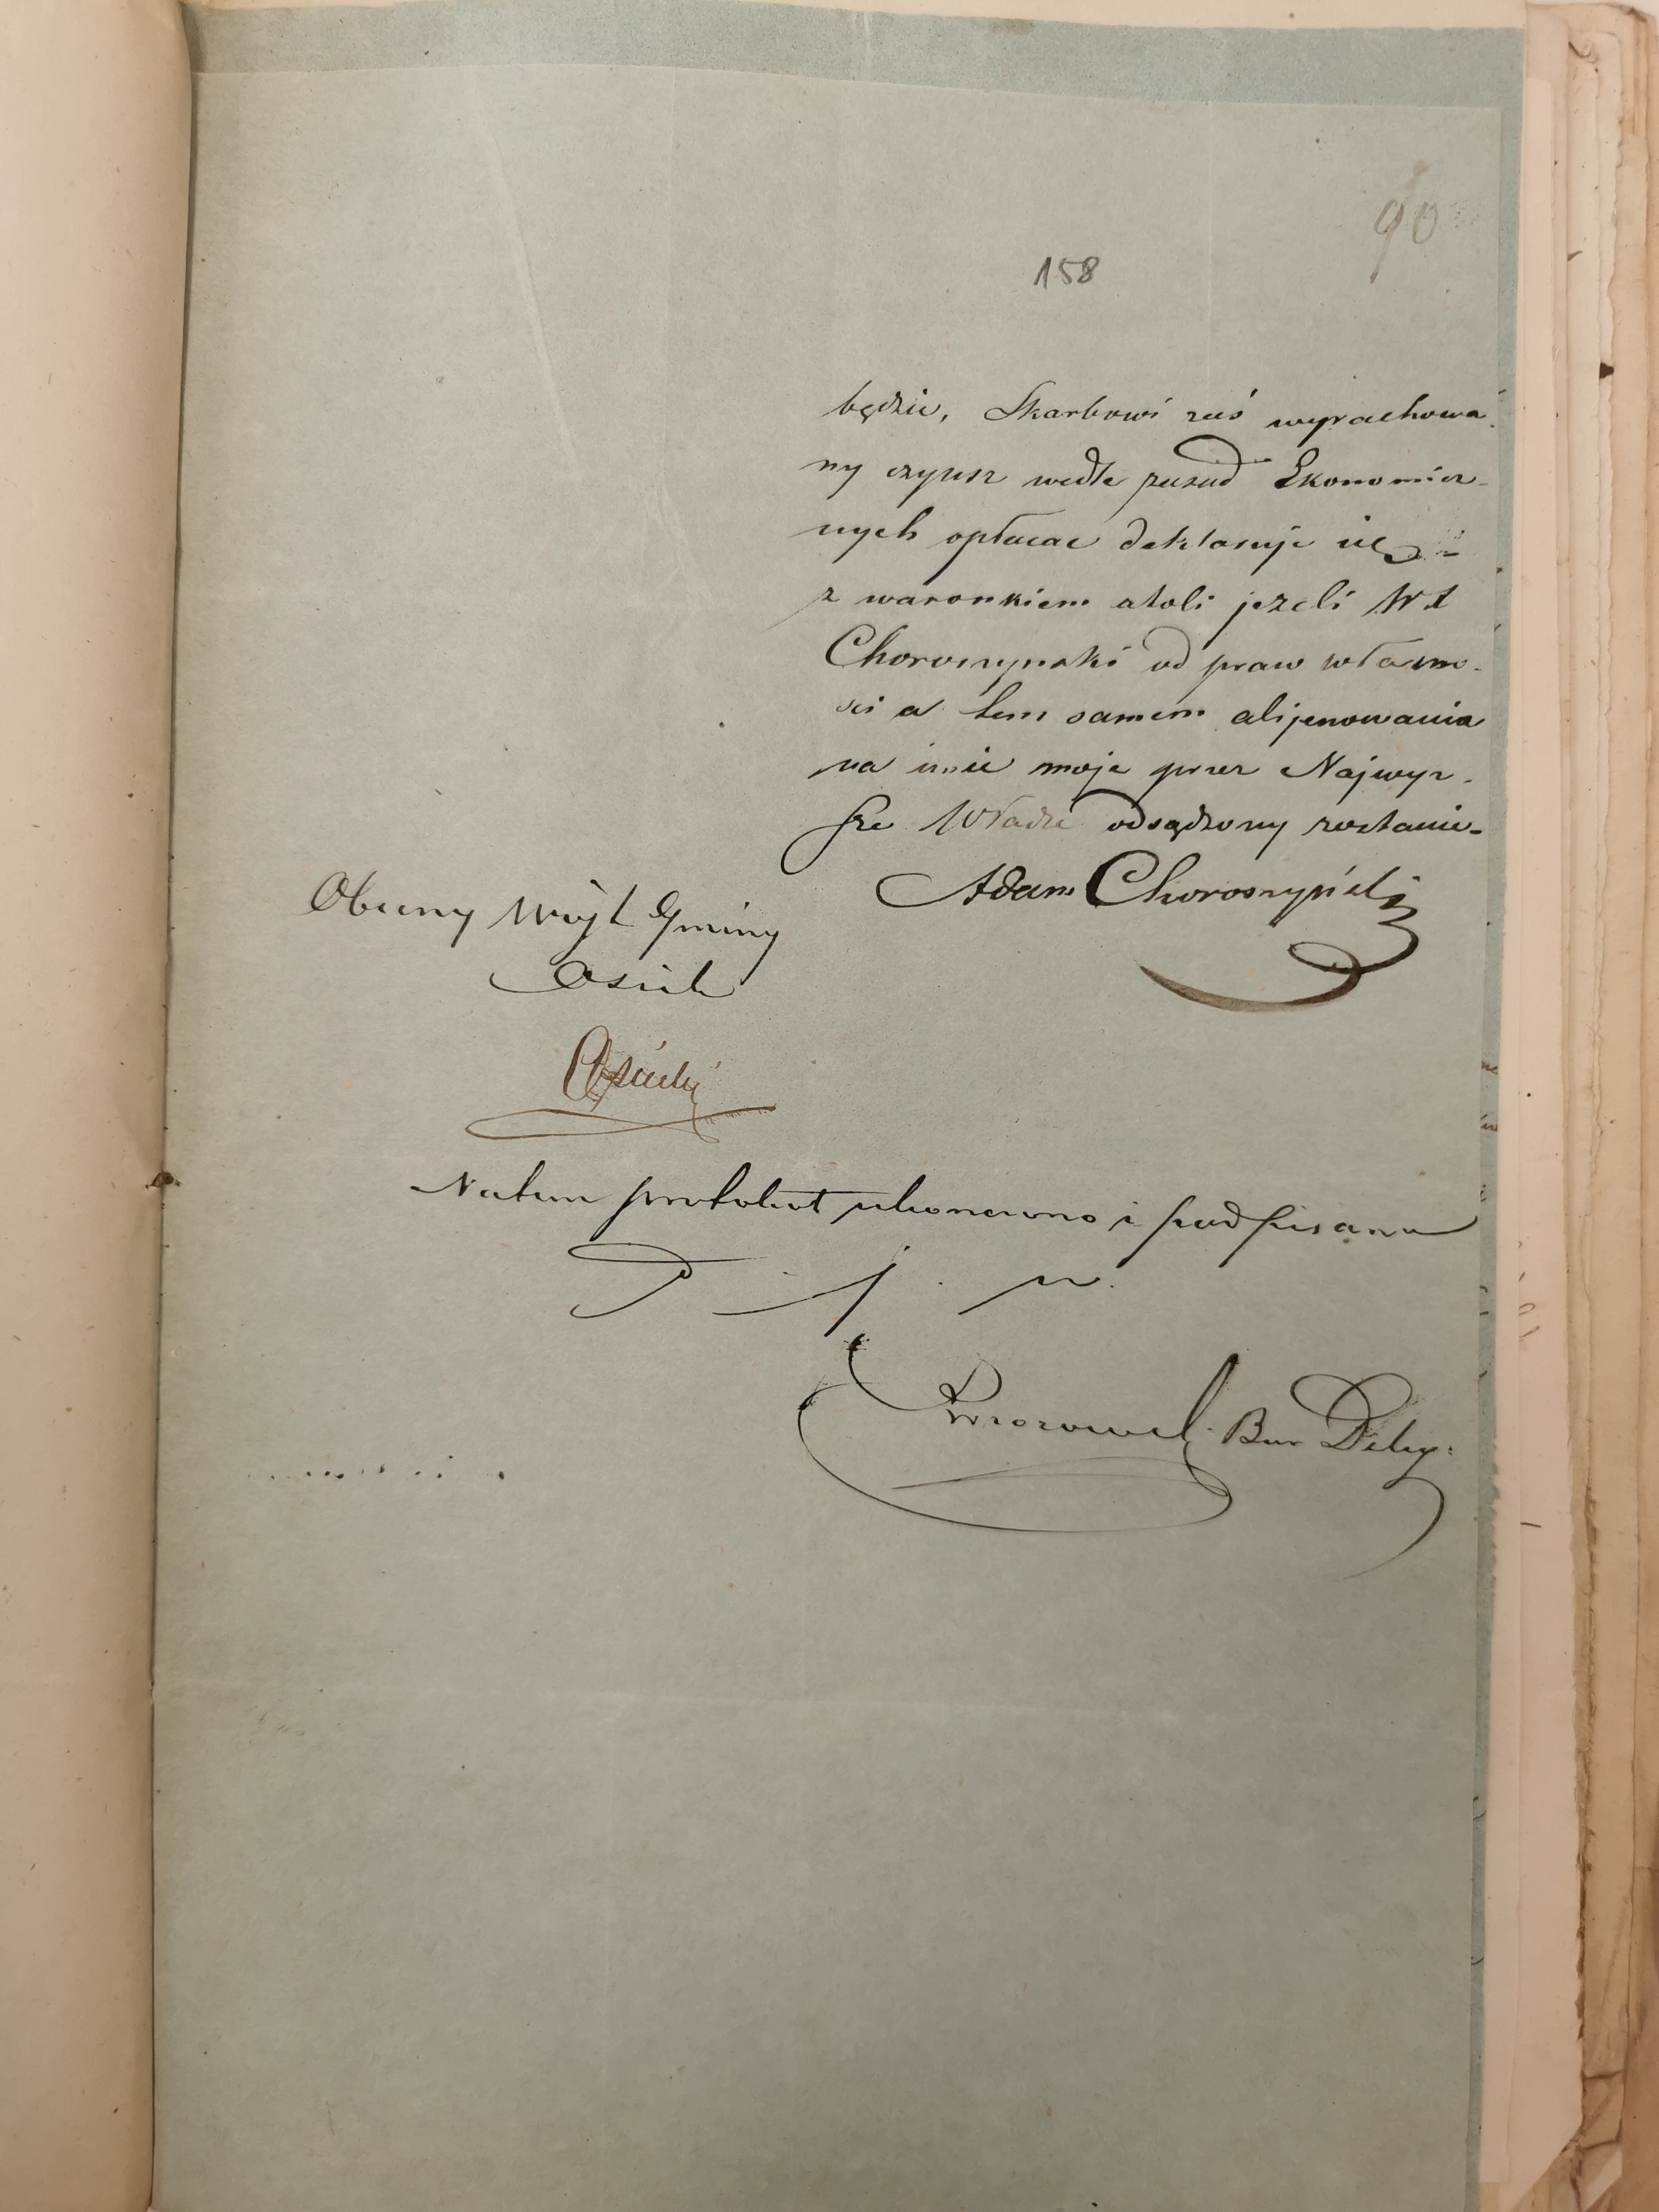 90
158
będzie, Skarbowi zaś wyrachowa-
ny czynsz wedle zasad Ekonomicz-
nych opłacac deklaruje się
z waronkiem atoli jezeli Wł
Choroszynski od praw własno-
sci a tem samem alijenowania
na imie moje przez Najwyz-
sze Władze odsądzony zostanie-
Adam Choroszyński
Obecny Wójt Gminy
Osiek
Na tem protokuł ukonczono i podpisano
D. j. w.
Bur Deleg: